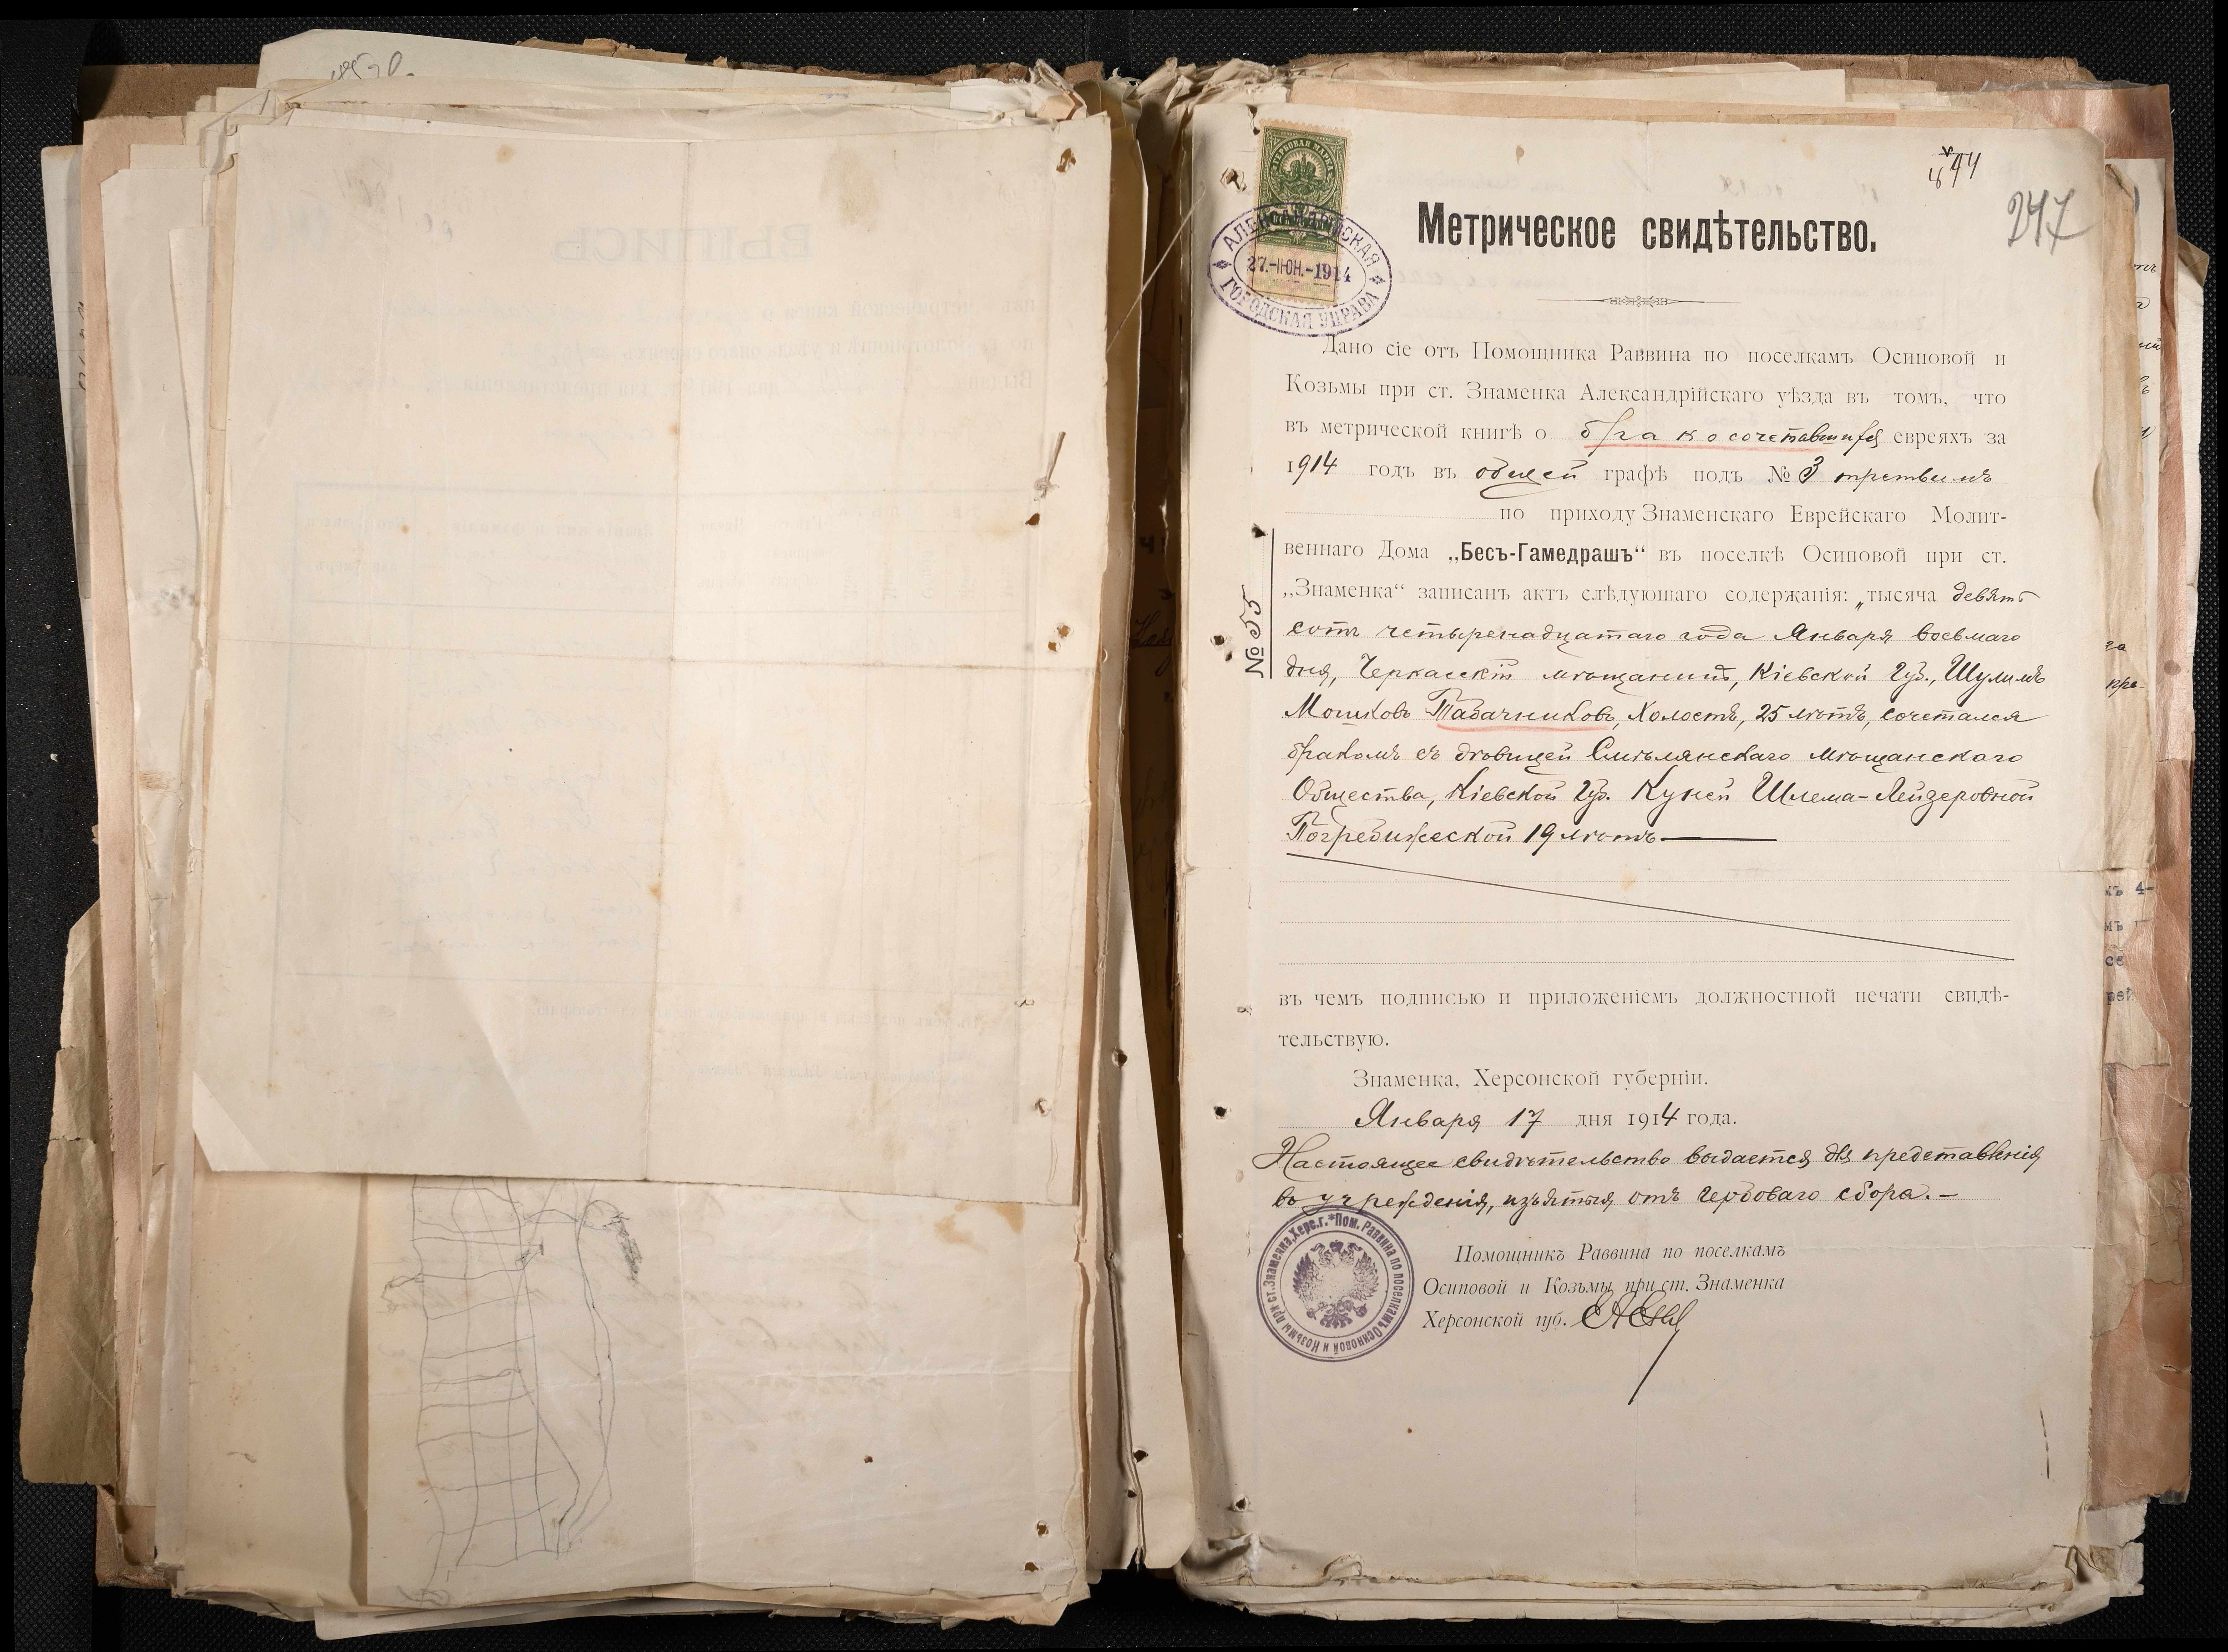 247
Метрическое свидѣтельство.
ГЕРБОВАЯ МАРКА
АЛЕКСАНДРІЙСКАЯ
27.-ІЮН.-1914
ГОРОДСКАЯ УПРАВА
Дано сіе отъ Помощника Раввина по поселкамъ Осиповой и
Козьмы при ст. Знаменка Александрійскаго уѣзда въ томъ, что
въ метрической книгѣ о бракосочетавшихся евреяхъ за
1914 годъ въ общей графѣ подъ № 3 третьимъ
по приходу Знаменскаго Еврейскаго Молит-
веннаго Дома „Бесъ-Гамедрашъ“ въ поселкѣ Осиповой при ст.
„Знаменка“ записанъ актъ слѣдующаго содержанія: „тысяча девять
сотъ четыренадцатаго года Января восьмаго
дня, Черкасскій мѣщанинъ, Кіевской Губ., Шулимъ
Мошковъ Табачниковъ, холостъ, 25 лѣтъ, сочетался
бракомъ съ дѣвицей Смѣлянскаго мѣщанскаго
Общества, Кіевской Губ. Куней Шлема-Лейзеровной
Погребижеской 19 лѣтъ
№ 55
въ чемъ подписью и приложеніемъ должностной печати свидѣ-
тельствую.
Знаменка, Херсонской губерніи.
Января 17 дня 1914 года.
Настоящее свидѣтельство выдается для представленія
въ учрежденія, изъятыя отъ гербоваго сбора.-
Помощникъ Раввина по поселкамъ
Осиповой и Козьмы при ст. Знаменка
Херсонской губ.
Пом. Раввина по поселкамъ Осиповой и Козьмы при ст. Знаменка, Херс. г.
ВЫПИСЬ